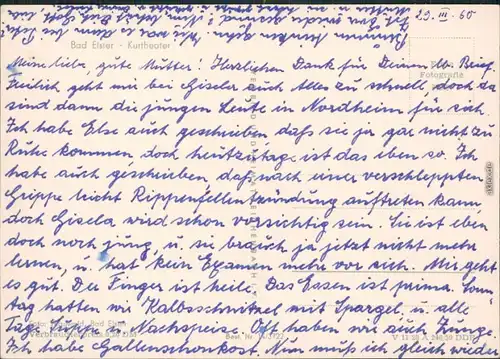 29. III. 60
Bad Elster · Kurtheater
Meine liebe, gute Mutter! Herzlichen Dank für Deinen lb. Brief.
Freilich geht mir bei Gisela auch Alles zu schnell, doch da
sind dann die jungen Leute in Nordheim für sich.
Ich habe Else auch geschrieben daß sie ja gar nicht zu
Ruhe kommen, doch heutzutage ist das eben so. Ich
habe auch geschrieben daß nach einer verschleppten
Grippe leicht Rippenfellentzündung auftreten kann,
doch Gisela wird schon vorsichtig sein. Sie ist eben
doch noch jung, u. sie brauch ja jetzt nicht mehr
lernen, u. hat kein Examen mehr vor sich. Mir geht
es gut. Der Finger ist heile. Das Essen ist prima. Sonn
tag hatten wir Kalbsschnitzel mit Spargel, u. alle
Tage Suppe u. Nachspeise. Oft haben wir auch Zunge
Ich habe Gallenschonkost. Nun muß ich gleich wieder
Fotografie
Bad Elster
V 11 28 A
DDR